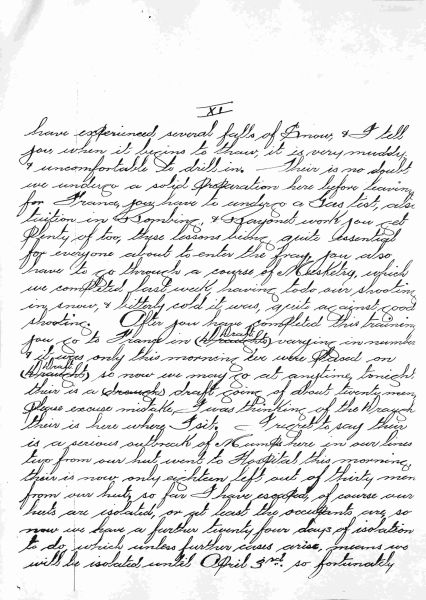 XI
have experienced several falls of Snow, & I tell
you when it begins to thaw, it is very muddy
& uncomfortable to drill in. — Their is no doubt
we undergo a solid preparation here before leaving
for France, you have to undergo a Gas test, also
tuition in Bombing, & Bayonet work you get
plenty of too, these lessons being quite essential
for everyone about to enter the fray, you also
have to go through a course of Musketry, which
we completed last week, having to do our shooting
in snow, & bitterly cold it was, quite against good
shooting. After you have completed this training
you go to France in (Draughts) Drafts varying in number
& it was only this morning we were placed on
(Draughts) Draft so now we may go at anytime, tonight
their is a draught draft going of about twenty men
Please excuse mistake, I was thinking of the
their is here where I sit. — I regret to say their
is a serious outbreak of Mumps here in our lines
two from our hut went to Hospital this morning,
their is now only eighteen left out of thirty men
from our hut, so far I have escaped, of course our
huts are isolated, or at least the occupants are, so
now we have a further twenty four days of isolation
to do, which unless further cases arise, means we
will be isolated until April 3rd so fortunately